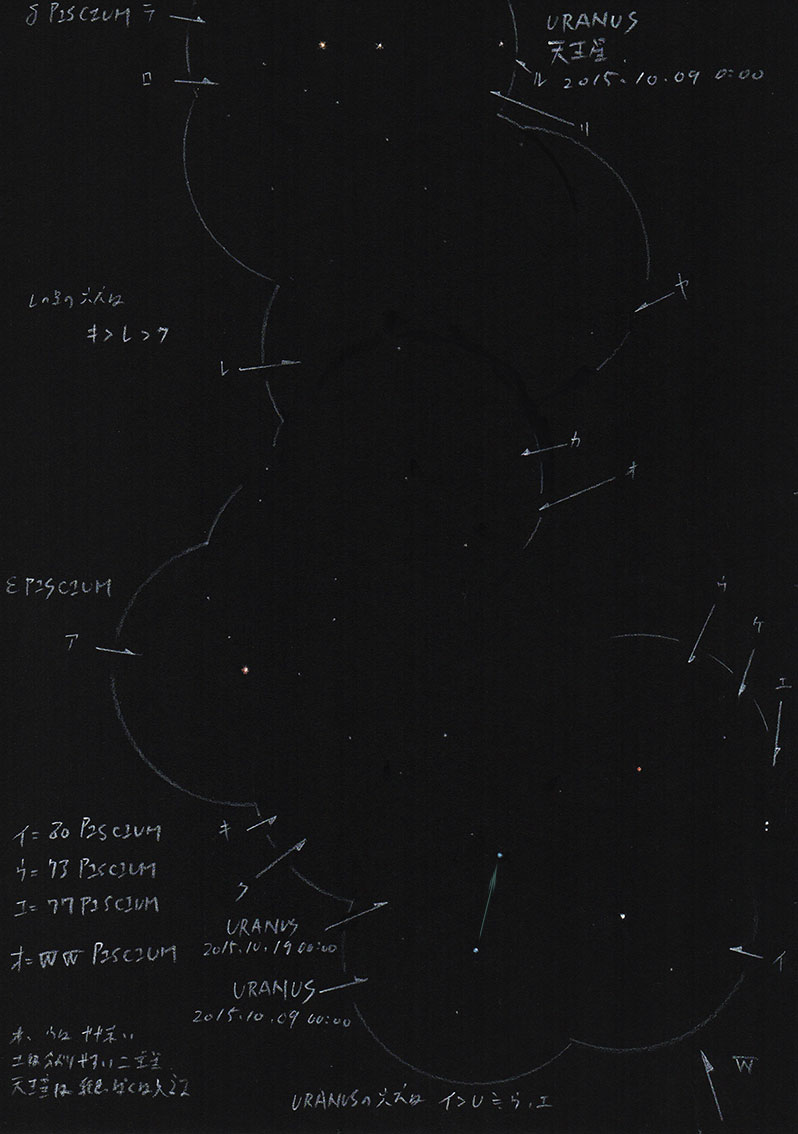 δ PISCIUM テ
URANUS
天王星
ル 2015.10.09 0:00
ロ
リ
ヤ
レの星の光度は
キ>レ>ク
レ
カ
オ
ε PISCIUM
ア
ウ
ケ
エ
キ
ク
イ=80 PISCIUM
ウ=73 PISCIUM
エ=77 PISCIUM
オ=WW PISCIUM
URANUS
2015.10.19 00:00
URANUS
2015.10.09 00:00
イ
W
オ、ウは やや赤い
二重星
天王星は
URANUSの光度は イ>U≒ウ,エ